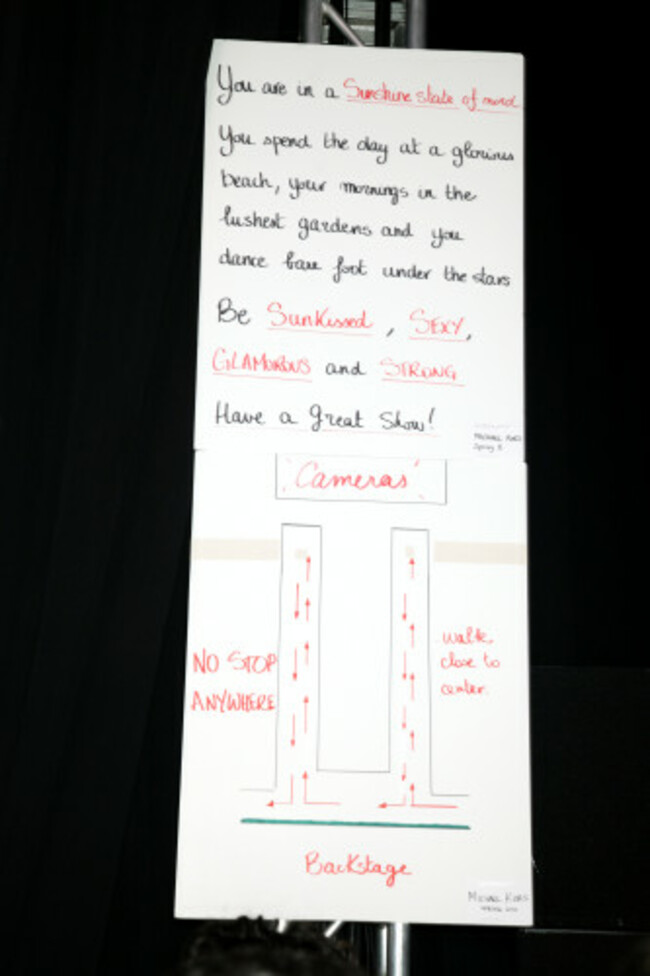 You are in a Sunshine state of mind
You spend the day at a glorious
beach, your mornings in the
lushest gardens and you
dance bare foot under the stars
Be SunKissed, SEXY,
GLAMOROUS and STRONG
Have a Great Show!
MICHAEL KORS
Spring
"Cameras"
NO STOP
ANYWHERE
walk
close to
center
Backstage
MICHAEL KORS